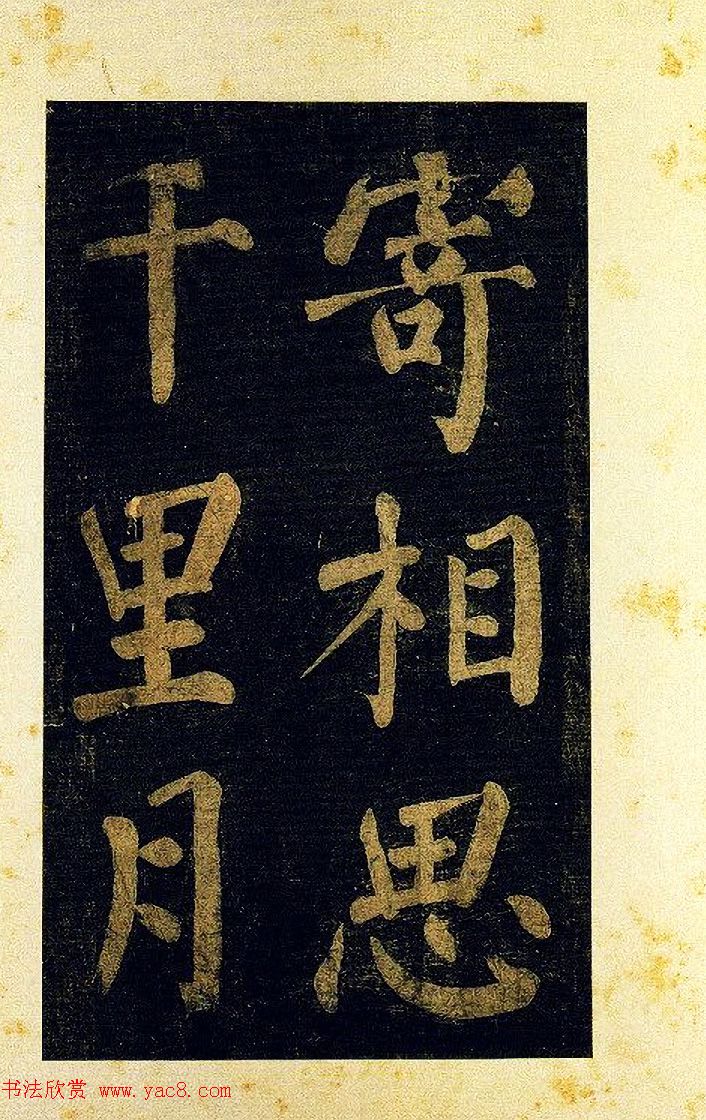 寄相思
千里月
书法欣赏 www.yac8.com